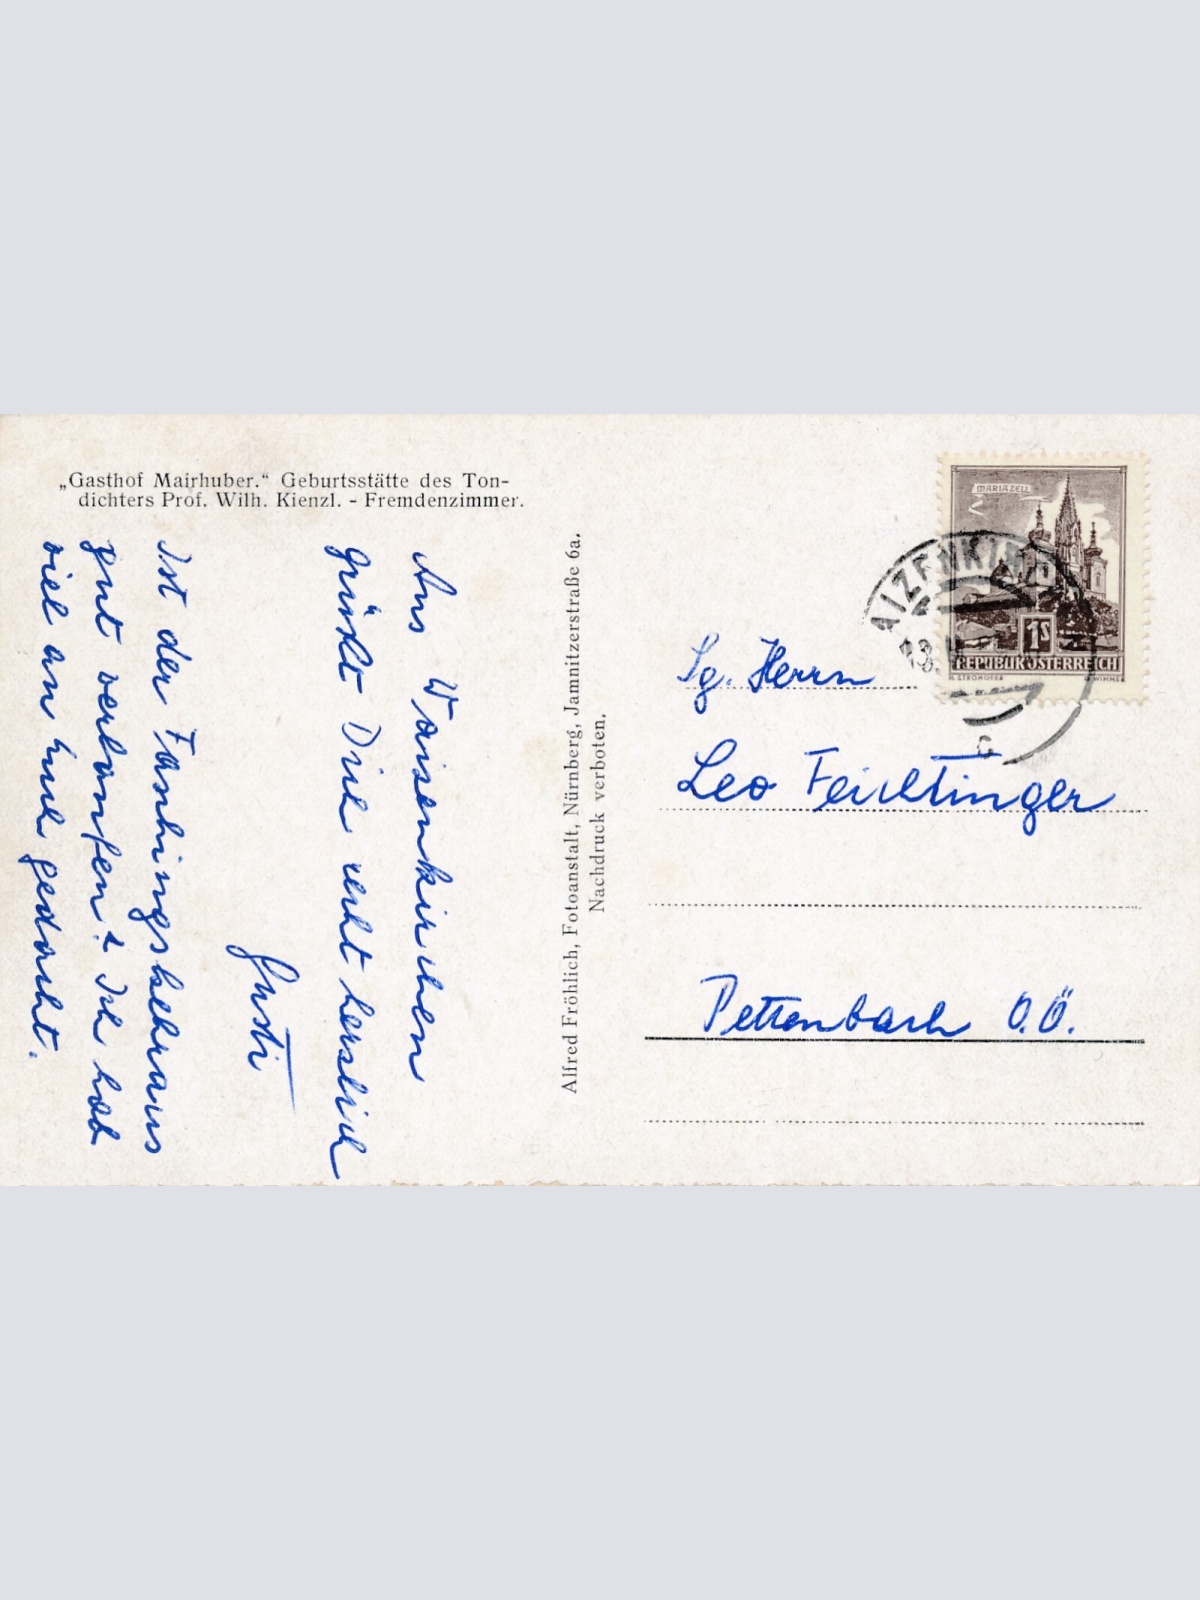 „Gasthof Mairhuber.“ Geburtsstätte des Ton-
dichters Prof. Wilh. Kienzl. - Fremdenzimmer.
Aus Waizenkirchen
grüßt Dich recht herzlich
Gusti
Ist der Faschingskehraus
gut verlaufen? Ich hab
viel an euch gedacht.
Alfred Fröhlich, Fotoanstalt, Nürnberg, Jamnitzerstraße 6a.
Nachdruck verboten.
MARIAZELL
1S
REPUBLIK ÖSTERREICH
H. STROHOFER
G. WIMMER
AIZENKIR
c
Sg. Herrn
Leo Feichtinger
Pettenbach O.Ö.